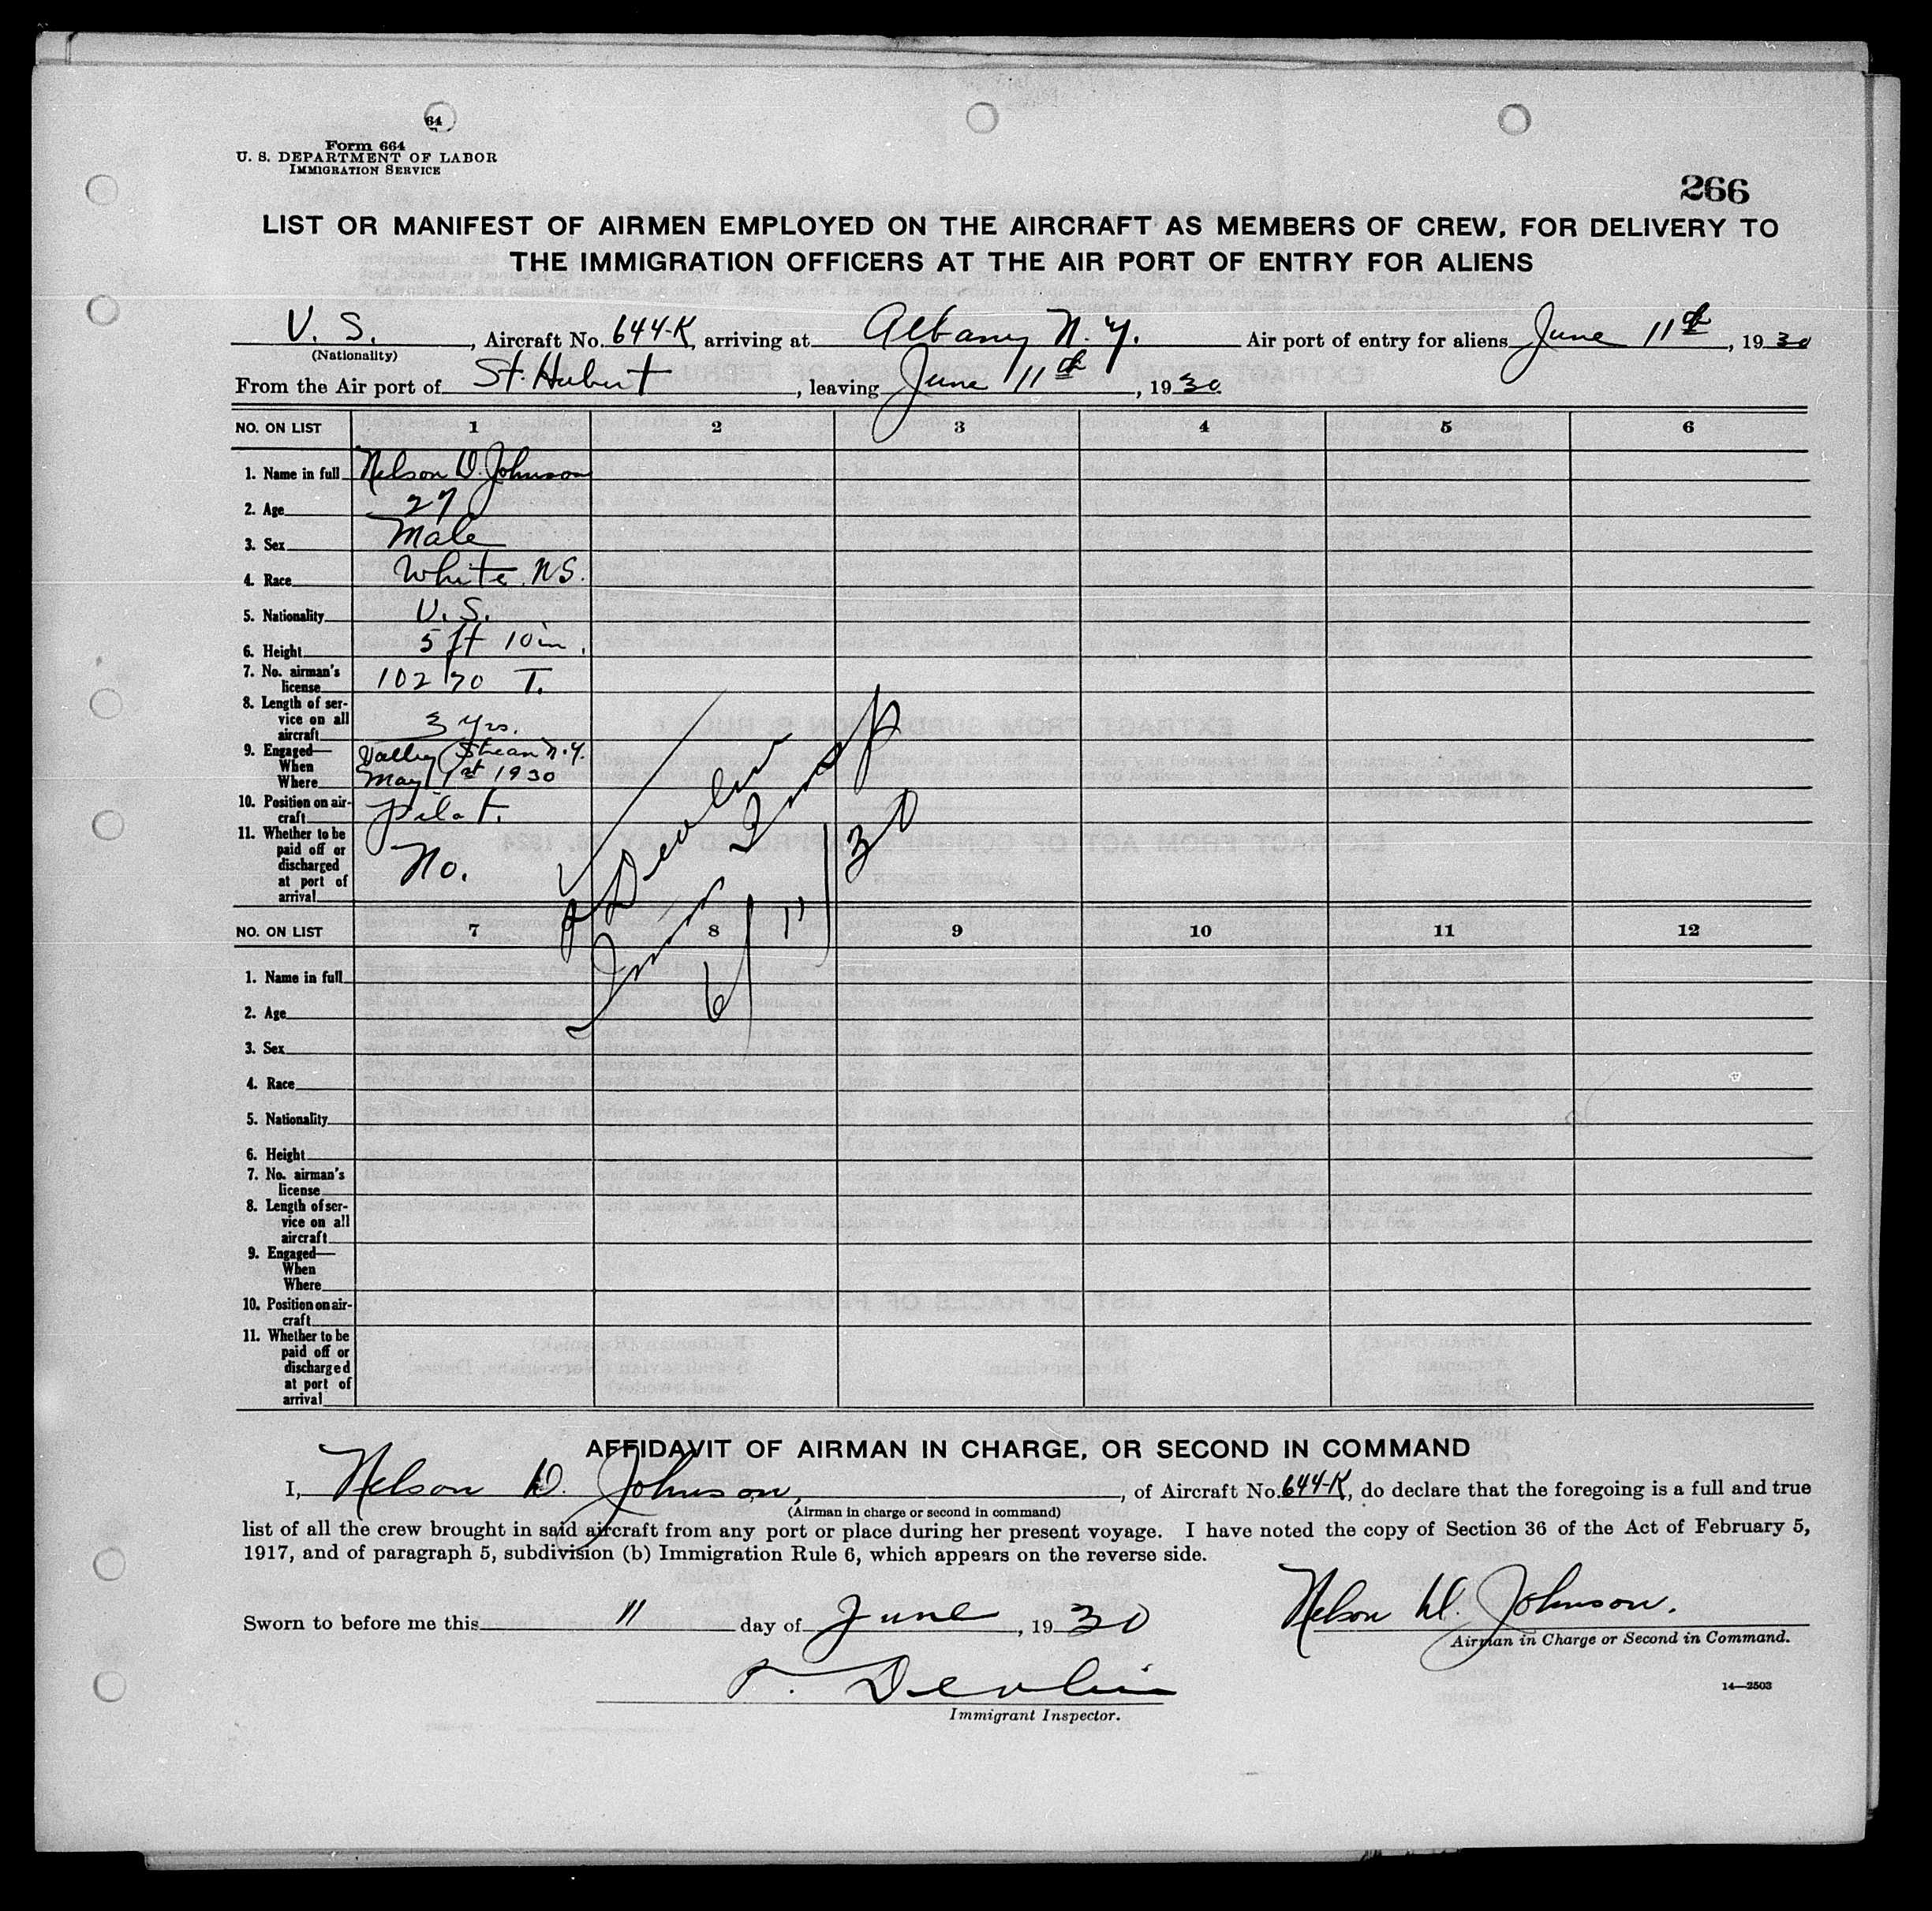 64
Form 664
U. S. DEPARTMENT OF LABOR
IMMIGRATION SERVICE
266
LIST OR MANIFEST OF AIRMEN EMPLOYED ON THE AIRCRAFT AS MEMBERS OF CREW, FOR DELIVERY TO
THE IMMIGRATION OFFICERS AT THE AIR PORT OF ENTRY FOR ALIENS
U. S., Aircraft No. 644-K, arriving at Albany N.Y. Air port of entry for aliens June 11th, 1930
(Nationality)
From the Air port of St. Hubert, leaving June 11th, 1930
NO. ON LIST 1 2 3 4 5 6
1. Name in full Nelson D. Johnson
2. Age 27
3. Sex Male
4. Race White. N.S.
5. Nationality U.S.
6. Height 5 ft 10 in.
7. No. airman's
license 10270 T.
8. Length of ser-
vice on all
aircraft 3 yrs.
9. Engaged— Valley Stream N.Y.
When
Where May 1st 1930
10. Position on air-
craft Pilot.
11. Whether to be
paid off or
discharged
at port of
arrival No.
Devlin
Immig Insp
6/11/30
NO. ON LIST 7 8 9 10 11 12
1. Name in full
2. Age
3. Sex
4. Race
5. Nationality
6. Height
7. No. airman's
license
8. Length of ser-
vice on all
aircraft
9. Engaged—
When
Where
10. Position on air-
craft
11. Whether to be
paid off or
discharged
at port of
arrival
AFFIDAVIT OF AIRMAN IN CHARGE, OR SECOND IN COMMAND
I, Nelson D. Johnson, of Aircraft No. 644-K, do declare that the foregoing is a full and true
(Airman in charge or second in command)
list of all the crew brought in said aircraft from any port or place during her present voyage. I have noted the copy of Section 36 of the Act of February 5,
1917, and of paragraph 5, subdivision (b) Immigration Rule 6, which appears on the reverse side.
Nelson D. Johnson.
Sworn to before me this 11 day of June, 1930
Airman in Charge or Second in Command.
Devlin
14—2503
Immigrant Inspector.